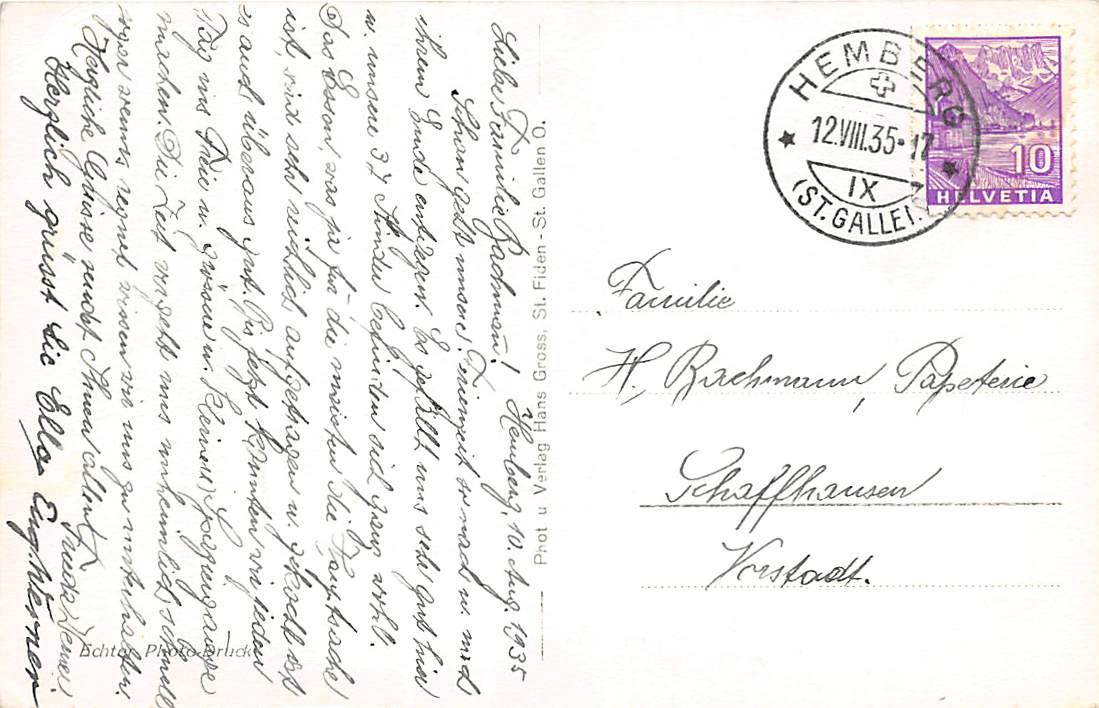 Hemberg, 10. Aug. 1935
Liebe Familie Bachmann!
Schon geht unsere Ferienzeit so nach u. nach
ihrem Ende entgegen. Es gefällt uns sehr gut hier
u. unsere 37 Kinder befinden sich ganz wohl.
Das Essen, was ja für die meisten die Hauptsache
ist, wird sehr reichlich aufgetragen u. gekocht ist
es auch überaus gut. Bis jetzt konnten wir jeden
Tag ins Freie u. grössere u. kleinere Spaziergänge
machen. Die Zeit vergeht uns unheimlich schnell
wenns regnet wissen wir uns zu unterhalten.
Herzliche Grüsse sendet Ihnen allen
Herzlich grüsst Sie Ella Engh
Echter Photo-Druck
Phot u Verlag Hans Gross, St. Fiden - St. Gallen O.
HEMBERG
12.VIII.35·17
IX
(ST. GALLEN)
10
HELVETIA
Familie
H. Bachmann, Papeterie
Schaffhausen
Vorstadt.